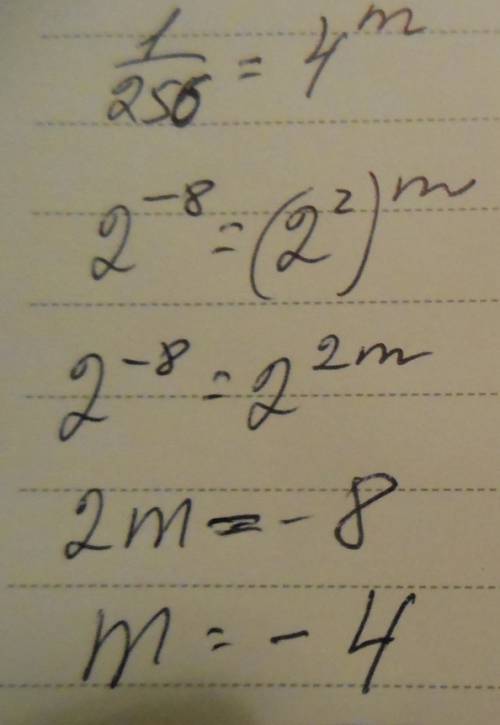 1/256 = 4^m
2^-8 = (2^2)^m
2^-8 = 2^2m
2m = -8
m = -4